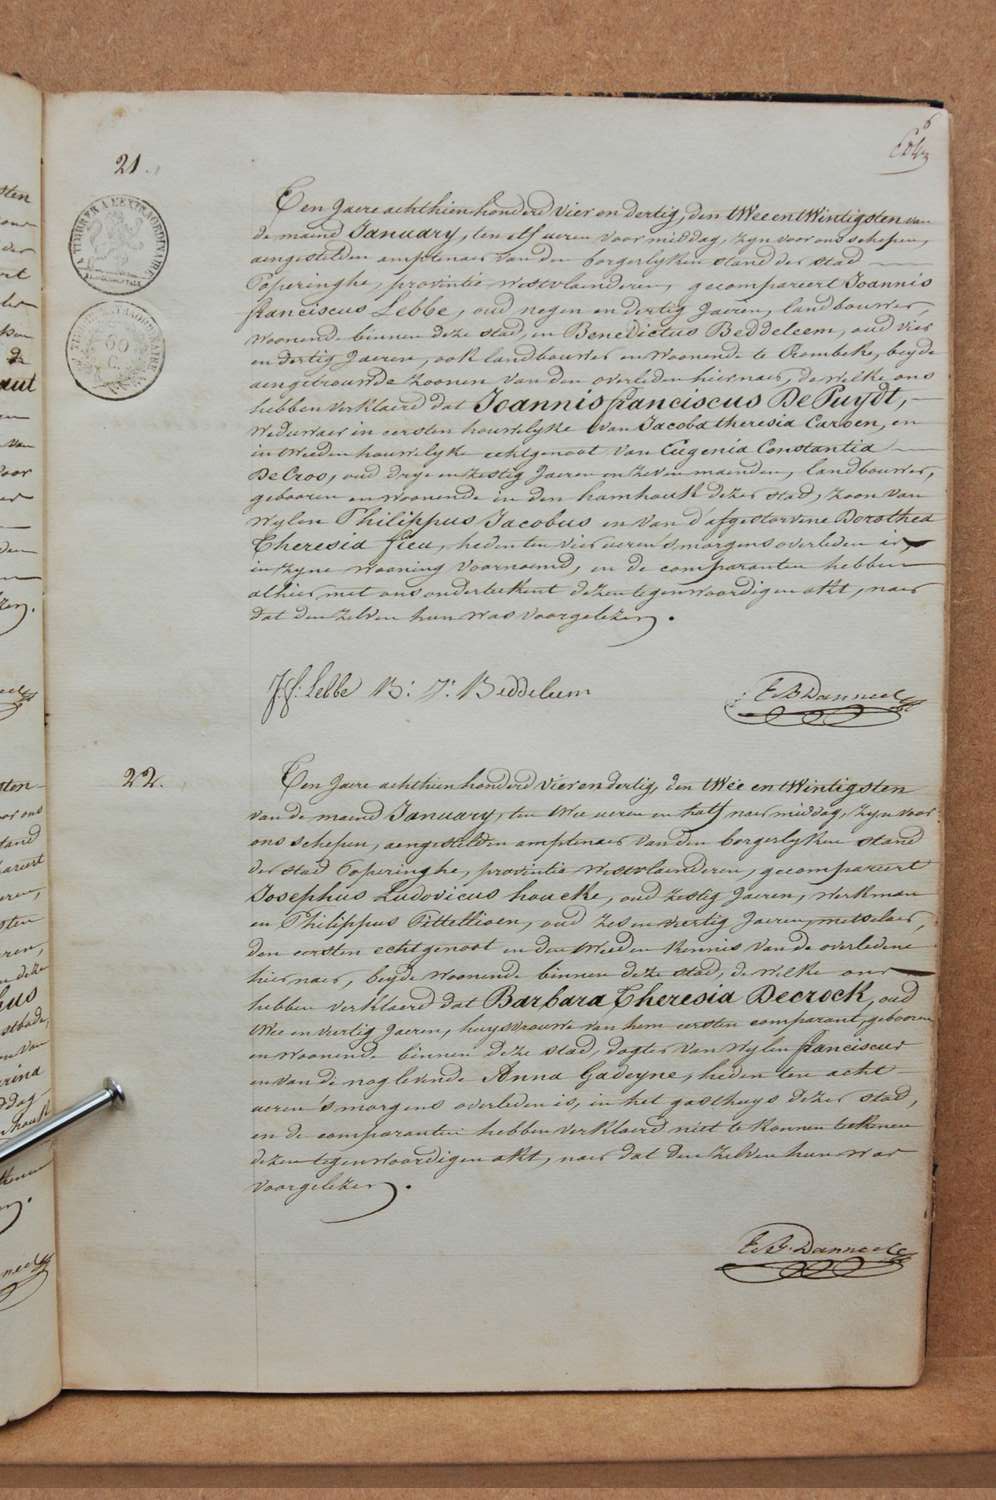 6
21.
TIMBRE A L'EXTRAORDINAIRE
Een Jaere achthienhonderd vier en dertig, den twee en twintigsten van
de maend January, ten elf ueren voor middag, zyn voor ons schepen,
aengestelden amptenaer van den borgerlyken stand der stad
Poperinghe, provintie westvlaenderen, gecompareert Joannis
franciscus Lebbe, oud negen en dertig Jaeren, landbouwer,
woonende binnen deze stad, en Benedictus Beddeleem, oud vier
en dertig Jaeren, ook landbouwer en woonende te Crombeke, beyde
aengetrouwde zoonen van den overleden hier naer, de welke ons
hebben verklaerd dat Joannis franciscus De Puydt,
weduwaer in eersten houwelyke van Jacoba theresia Carben, en
in tweeden houwelyke echtgenoot van Eugenia Constantia
De Cros, oud drye en zestig Jaeren en zeven maenden, landbouwer,
gebooren en woonende in den hamhouk dezer stad, zoon van
wylen Philippus Jacobus en van d'afgestorvene Dorothea
Theresia fieu, heden ten vier ueren 's morgens overleden is,
in zyne wooning voornoemd, en de comparanten hebben
alhier met ons onderteekent dezen tegenwoordigen akt, naer
dat den zelven hun was voorgelezen.
J. f. Lebbe B: J: Beddeleem
F. B. Danneel
22.
Een Jaere achthienhonderd vier en dertig, den twee en twintigsten
van de maend January, ten twee ueren en half naer middag, zyn voor
ons schepen, aengestelden amptenaer van den borgerlyken stand
der stad Poperinghe, provintie westvlaenderen, gecompareert
Josephus Ludovicus houcke, oud zestig Jaeren, werkman
en Philippus Pittellioen, oud zes en veertig Jaeren, metselaer,
den eersten echtgenoot en den tweeden kennis van de overledene
hier naer, beyde woonende binnen deze stad, de welke ons
hebben verklaerd dat Barbara Theresia Decrock, oud
twee en veertig Jaeren, huysvrouwe van hem eersten comparant, gebooren
en woonende binnen deze stad, dogter van wylen franciscus
en van de nog levende Anna Gadeyne, heden ten acht
ueren 's morgens overleden is, in het gasthuys dezer stad,
en de comparanten hebben verklaerd niet te konnen teekenen
dezen tegenwoordigen akt, naer dat den zelven hun was
voorgelezen.
F. B. Danneel